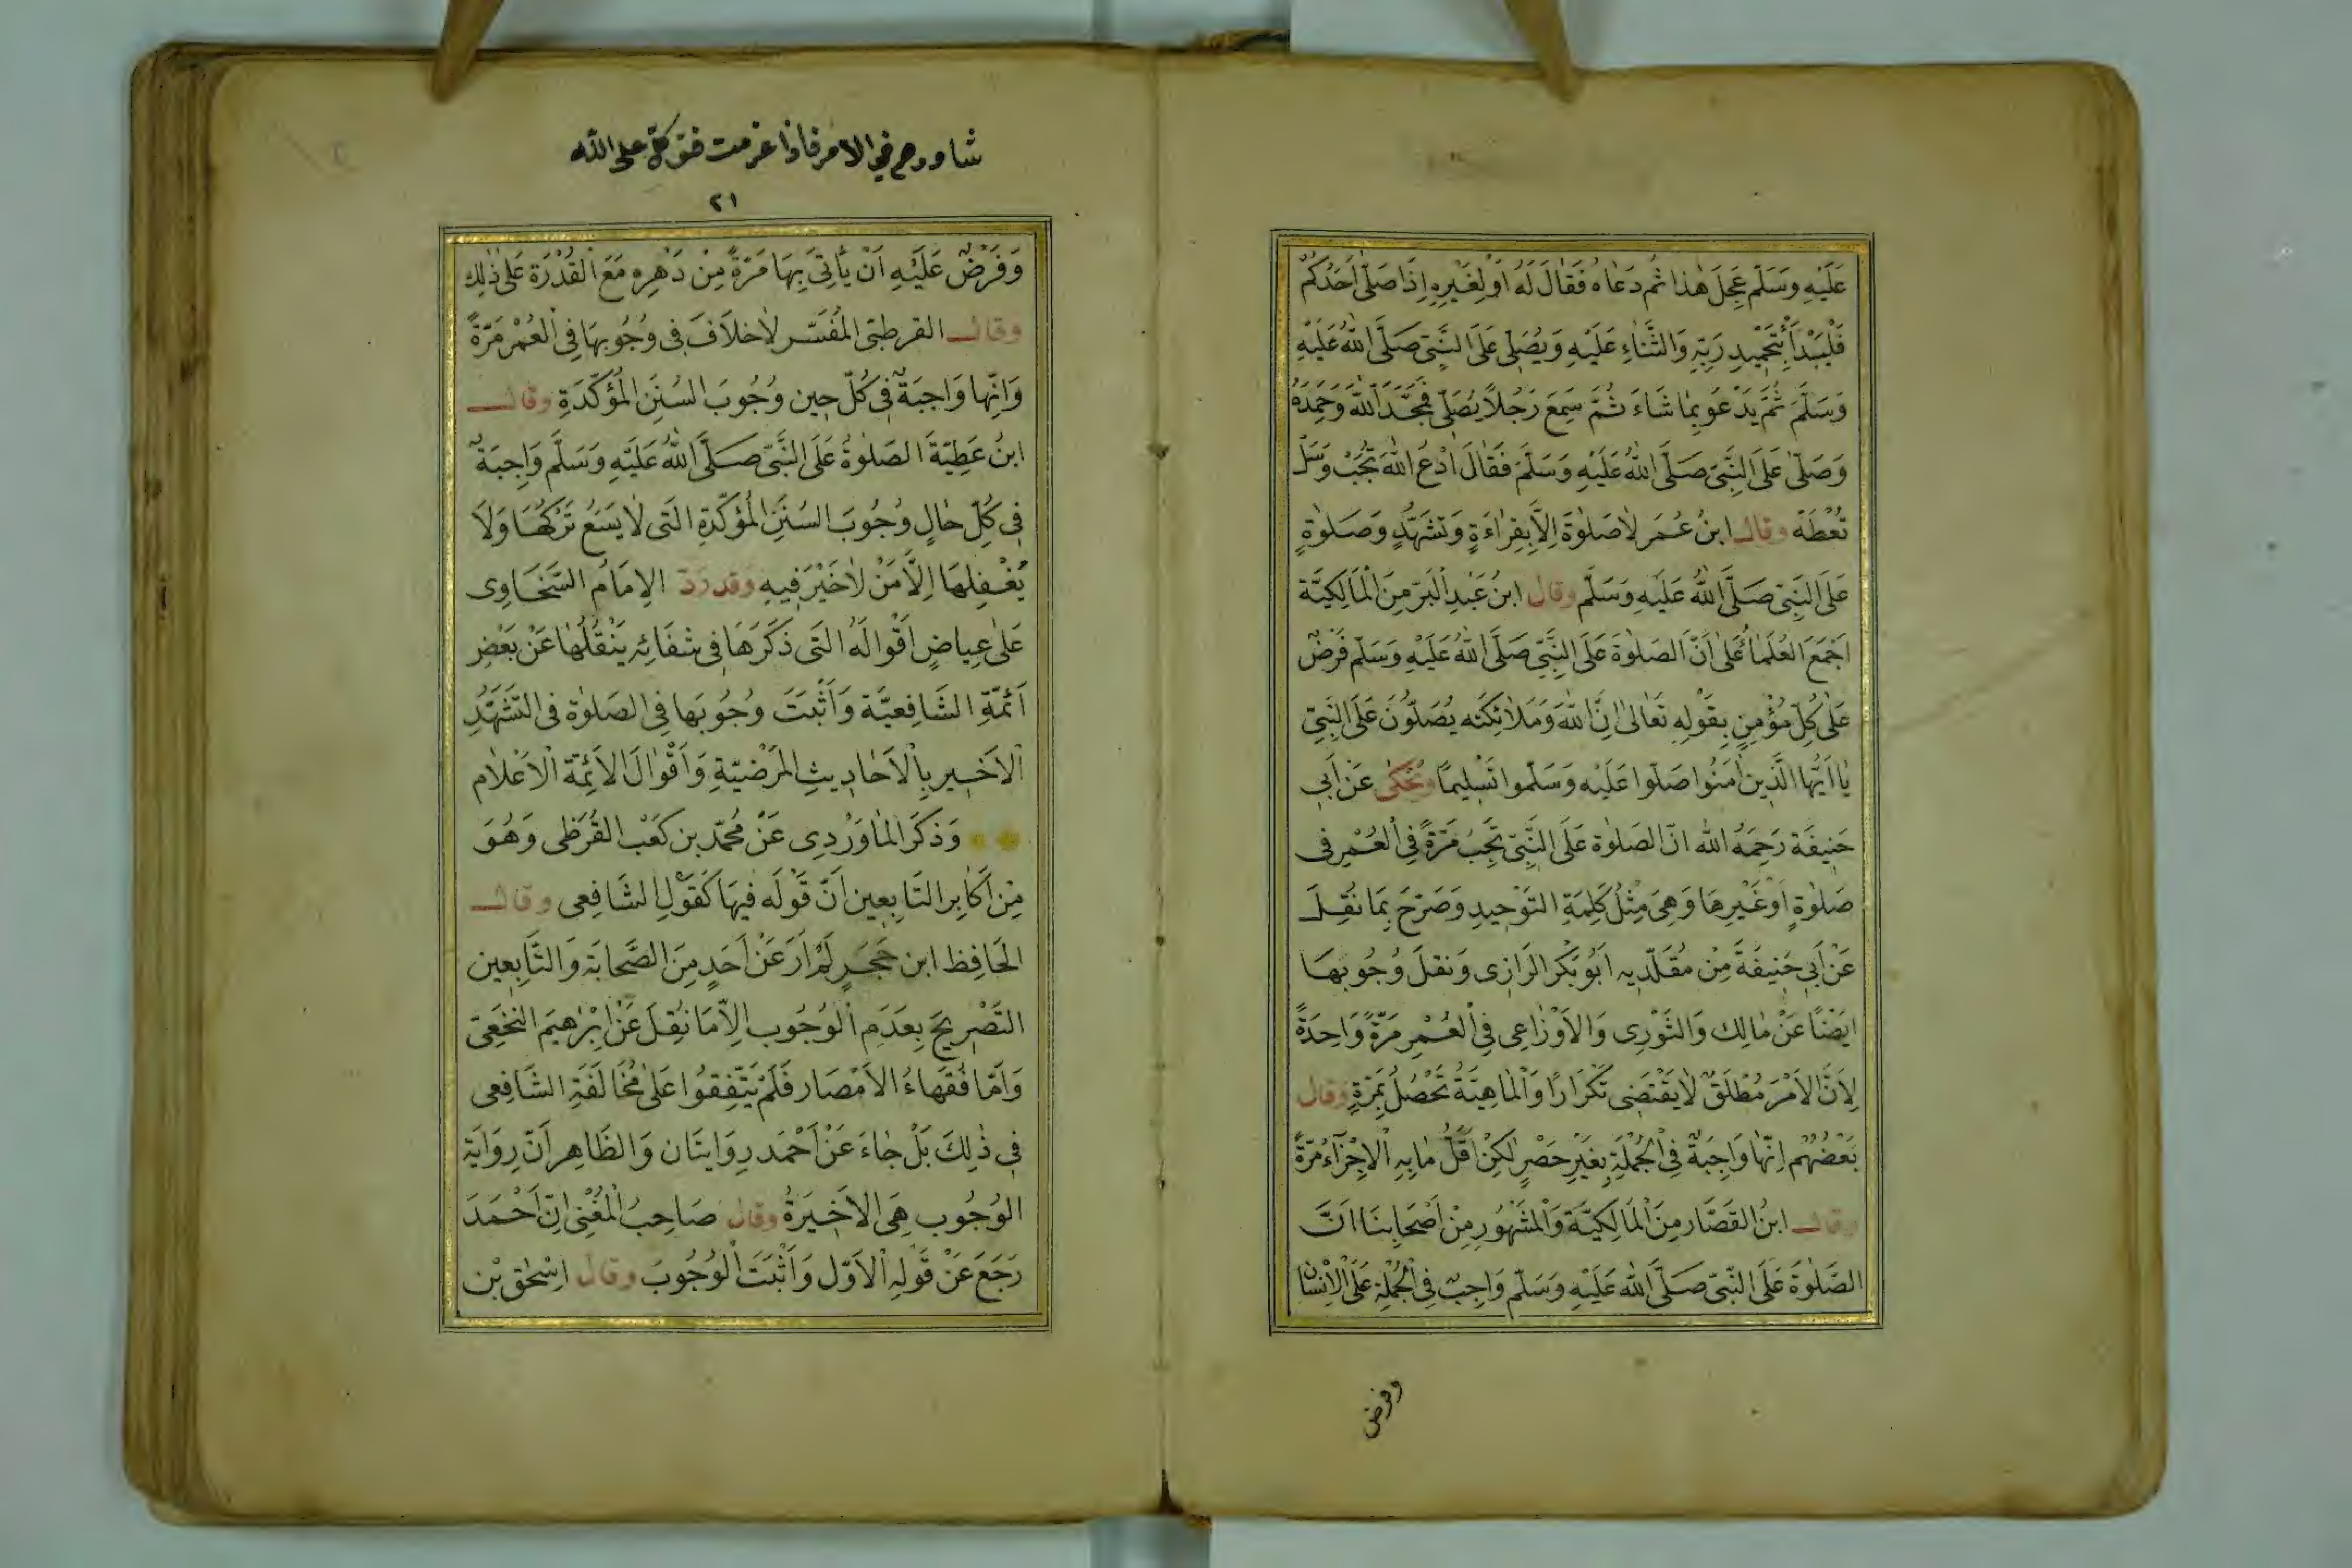 عَلَيْهِ وَسَلَّمَ عَجِلَ هٰذَا ثُمَّ دَعَاهُ فَقَالَ لَهُ اَوْ لِغَيْرِهِ اِذَا صَلّٰى اَحَدُكُمْ
فَلْيَبْدَأْ بِتَحْمِيدِ رَبِّهِ وَالثَّنَاءِ عَلَيْهِ وَيُصَلِّى عَلَى النَّبِىِّ صَلَّى اللّٰهُ عَلَيْهِ
وَسَلَّمَ ثُمَّ يَدْعُو بِمَا شَاءَ ثُمَّ سَمِعَ رَجُلًا يُصَلِّى فَمَجَّدَ اللّٰهَ وَحَمِدَهُ
وَصَلّٰى عَلَى النَّبِىِّ صَلَّى اللّٰهُ عَلَيْهِ وَسَلَّمَ فَقَالَ اُدْعُ اللّٰهَ تُجَبْ وَسَلْ
تُعْطَهْ وقال ابنُ عُمَرَ لَا صَلٰوةَ اِلَّا بِقِرَاءَةٍ وَتَشَهُّدٍ وَصَلٰوةٍ
عَلَى النَّبِىِّ صَلَّى اللّٰهُ عَلَيْهِ وَسَلَّمَ وقال ابنُ عَبْدِ الْبَرِّ مِنَ الْمَالِكِيَّة
اَجْمَعَ الْعُلَمَاءُ عَلٰى اَنَّ الصَّلٰوةَ عَلَى النَّبِىِّ صَلَّى اللّٰهُ عَلَيْهِ وَسَلَّمَ فَرْضٌ
عَلٰى كُلِّ مُؤْمِنٍ بِقَوْلِهِ تَعَالٰى اِنَّ اللّٰهَ وَمَلَائِكَتَه يُصَلُّونَ عَلَى النَّبِىِّ
يَا اَيُّهَا الَّذِينَ اٰمَنُوا صَلُّوا عَلَيْهِ وَسَلِّمُوا تَسْلِيمًا ويُحْكٰى عَنْ اَبِى
حَنِيفَة رَحِمَهُ اللّٰه انّ الصَلٰوة عَلَى النَّبِىِّ تَجِبُ مَرَّةً فِى الْعُمْرِ فِى
صَلٰوةٍ اَوْ غَيْرِهَا وَهِىَ مِثْلُ كَلِمَةِ التَوْحِيدِ وَصَرَّحَ بِمَا نُقِلَ
عَنْ اَبِى حَنِيفَةَ مِنْ مُقَلِّدِيهِ اَبُو بَكْر الرَازِى وَنَقَلَ وُجُوبَهَا
ايضًا عَنْ مَالِك وَالثَوْرِى وَالاَوْزَاعِى فِى الْعُمْرِ مَرَّةً وَاحِدَةً
لِاَنَّ الاَمْرَ مُطْلَقٌ لَا يَقْتَضِى تَكْرَارًا وَالْمَاهِيَّةُ تَحْصُلُ بِمَرَّةٍ وقال
بَعْضُهُمْ اِنَّهَا وَاجِبَةٌ فِى الْجُمْلَةِ بِغَيْرِ حَصْرٍ لٰكِنْ اَقَلُّ مَا بِهِ الْاِجْزَاءُ مَرَّةً
وقال ابنُ القَصَّار مِنَ الْمَالِكِيَّة وَالْمَشْهُورِ مِنْ اَصْحَابِنَا اَنَّ
الصَّلٰوةَ عَلَى النَّبِىّ صَلَّى اللّٰه عَلَيْهِ وَسَلَّم وَاجِبٌ فِى الْجُمْلَةِ عَلَى الْاِنْسَانِ
وفرض
شاورهم في الامر فاذا عزمت فتوكل على الله
٢١
وَفَرْضٌ عَلَيْهِ اَنْ يَأْتِىَ بِهَا مَرَّةً مِنْ دَهْرِهِ مَعَ الْقُدْرَة عَلٰى ذٰلِكَ
وقال القرطبىّ الْمُفَسِّر لَا خلَافَ فِى وُجُوبِهَا فِى الْعُمْرِ مَرَّةً
وَاِنَّهَا وَاجِبَةٌ فِى كُلِّ حِين وُجُوبَ السُّنَنِ الْمُؤَكَّدَةِ وقال
ابنُ عَطِيَّةَ الصَلٰوةُ عَلَى النَّبِىِّ صَلَّى اللّٰهُ عَلَيْهِ وَسَلَّمَ وَاجِبَةٌ
فِى كُلِّ حَالٍ وُجُوبَ السُّنَنِ الْمُؤَكَّدَةِ الَّتِى لَا يَسَعُ تَرْكُهَا وَلَا
يُغْفِلُهَا اِلَّا مَنْ لَا خَيْرَ فِيهِ وقد رَدّ الاِمَامُ السَّخَاوِى
عَلٰى عِيَاضٍ اَقْوَالَهُ الَّتِى ذَكَرَهَا فِى شِفَائِهِ يَنْقُلُهَا عَنْ بَعْضِ
اَئِمَّةِ الشَافِعِيَّة وَاَثْبَتَ وُجُوبَهَا فِى الصَلٰوةِ فِى التَّشَهُّدِ
الْاَخِيرِ بِالْاَحَادِيثِ الْمَرْضِيَّةِ وَاَقْوَالِ الاَئِمَّة الْاَعْلَام
وَذَكَرَ الْمَاوَرْدِى عَنْ مُحَمَّد بن كَعْب القُرَظِى وَهُوَ
مِنْ اَكَابِرِ التَابِعِين اَنَّ قَوْلَه فِيهَا كَقَوْلِ الشَافِعِى وقال
الحَافِظ ابن حَجَرٍ لَمْ اَرَ عَنْ اَحَدٍ مِنَ الصَّحَابَة وَالتَّابِعِين
التَصْرِيحَ بِعَدَمِ الْوُجُوب اِلَّا مَا نُقِلَ عَنْ اِبْرٰهِيمَ النَخَعِىّ
وَاَمَّا فُقَهَاءُ الاَمْصَار فَلَمْ يَتَّفِقُوا عَلٰى مُخَالَفَةِ الشَافِعِى
فِى ذٰلِكَ بَلْ جَاءَ عَنْ اَحْمَد رِوَايتَان وَالظَاهِر اَنّ رِوَايَة
الوُجُوب هِىَ الاَخِيرَةُ وقال صَاحِبُ الْمُغْنِى اِنّ اَحْمَدَ
رَجَعَ عَنْ قَوْلِهِ الْاَوَّل وَاَثْبَتَ الْوُجُوبَ وقال اِسْحٰق بْن